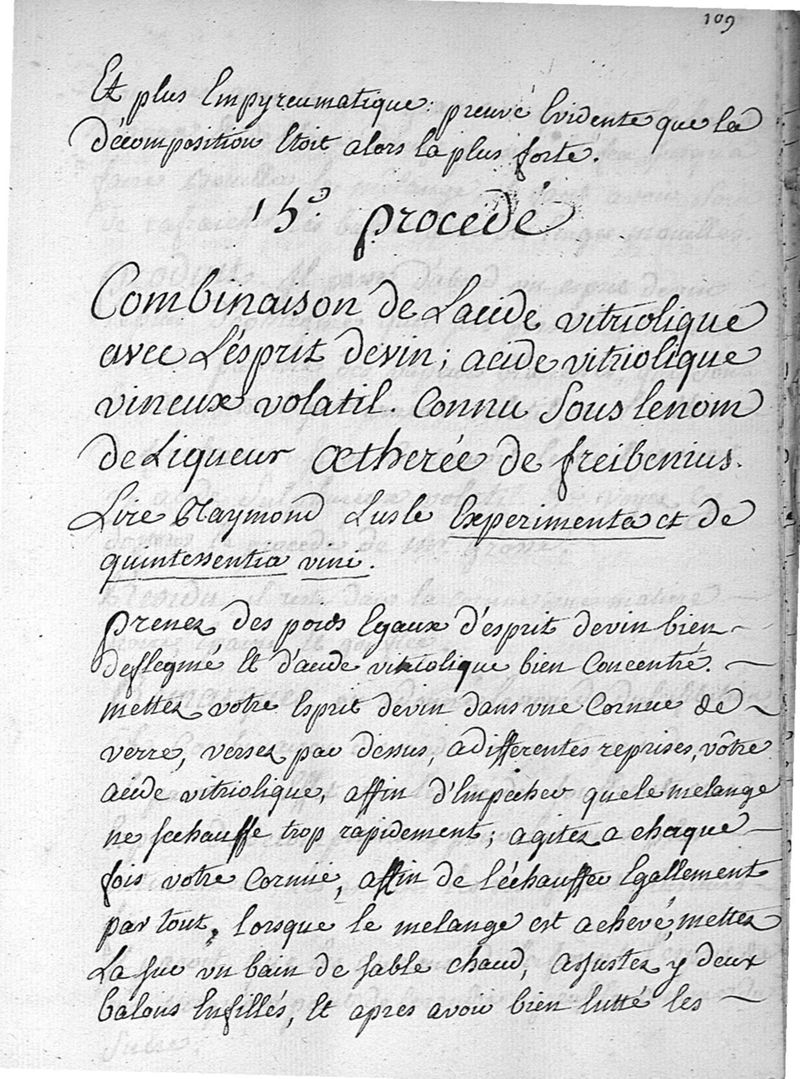 109
Et plus Empyreumatique : preuve Evidente que la
décomposition Etoit alors la plus forte.
15.º procedé
Combinaison de L'acide vitriolique
avec L'esprit devin ; acide vitriolique
vineux volatil. Connu Sous lenom
de Liqueur ætherée de freibenius.
Lire Raymond Lusle Experimenta et de
quintessentia vini.
prenez des poids Egaux d'esprit devin bien
deflegmé Et d'acide vitriolique bien Concentré.
mettez votre Esprit devin dans une Cornue de
verre, versez par dessus, adifferentes reprises, vôtre
acide vitriolique, affin d'Empecher quele melange
ne sechauffe trop rapidement ; agitez a chaque
fois votre Cornue, affin de l'échauffer Egallement
par tout, lorsque le melange est achevé, mettez
La sur un bain de sable chaud, ajustez y deux
balons Enfillés, Et apres avoir bien lutté les